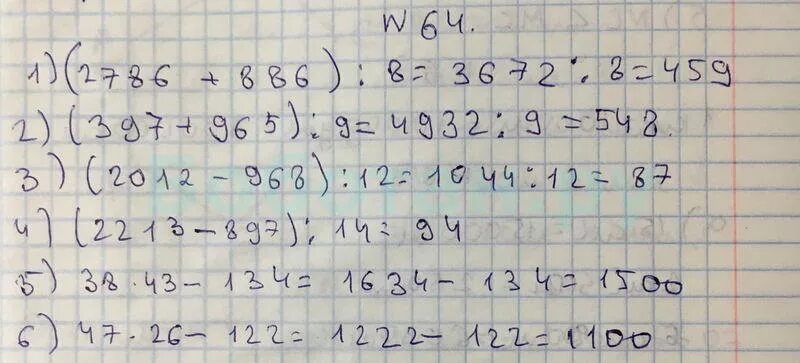 N 64.
1) (2786 + 886) : 8 = 3672 : 8 = 459
2) (397 + 965) : 9 = 4932 : 9 = 548.
3) (2012 - 968) : 12 = 1044 : 12 = 87
4) (2213 - 897) : 14 = 94
5) 38 · 43 - 134 = 1634 - 134 = 1500
6) 47 · 26 - 122 = 1222 - 122 = 1100